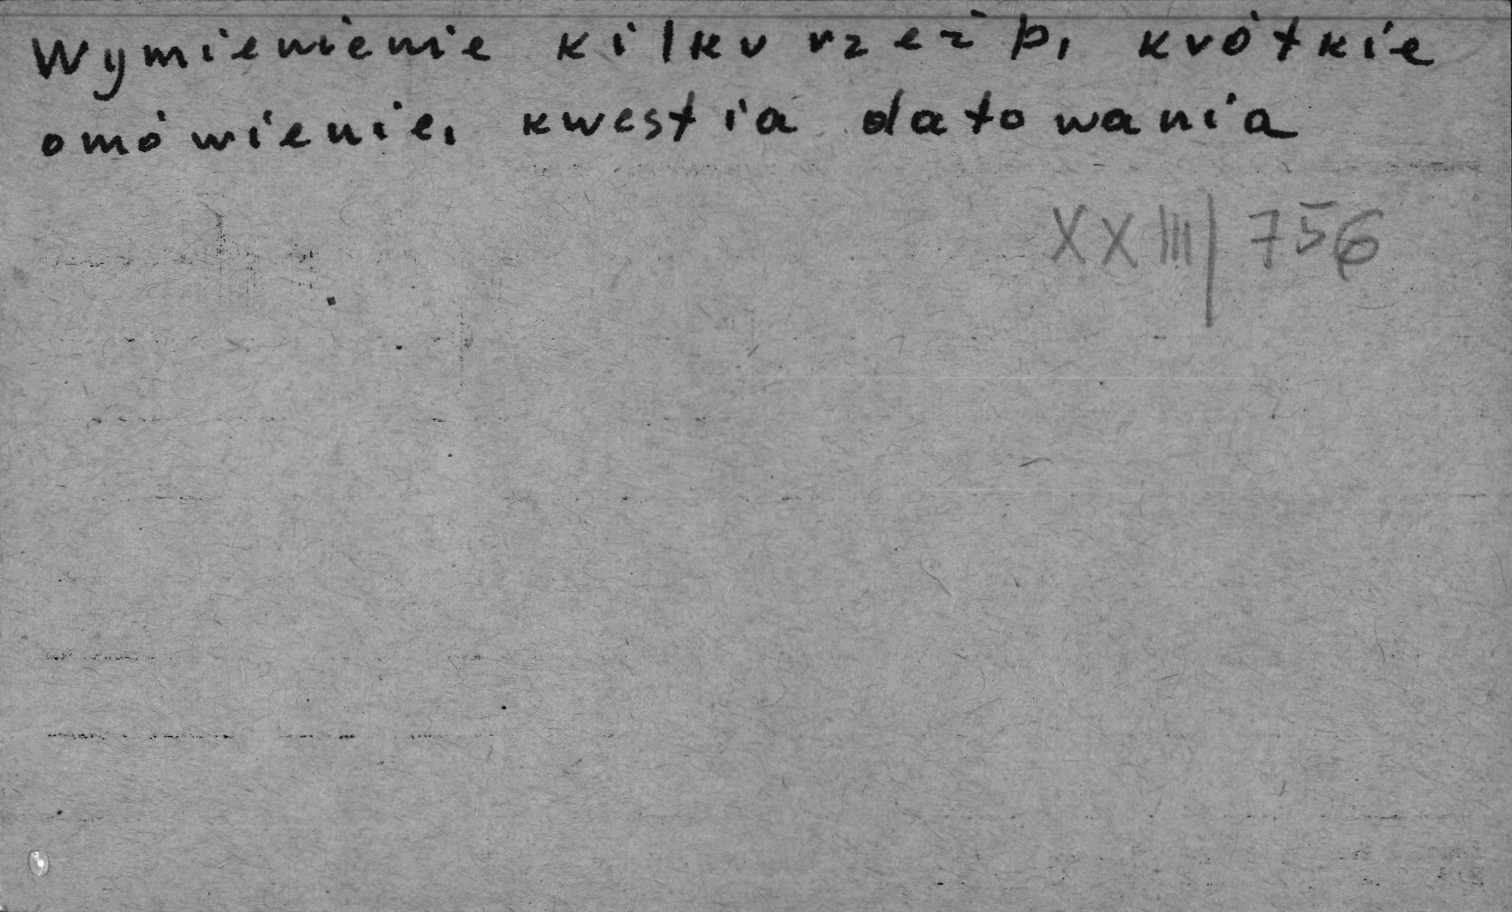 Wymienienie kilku rzeźb, krótkie
omówienie, kwestia datowania
XXIII/756